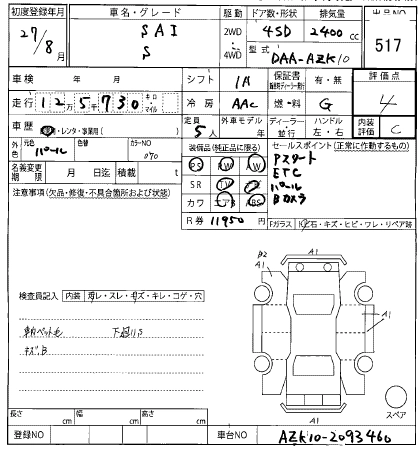 初度登録年月 車名・グレード 駆動 ドア数・形状 排気量 出品NO
27/8 SAI 2WD 4SD 2400cc 517
S 4WD 型式 DAA-AZK10
車検 年 月 シフト IA 保証書 有・無 評価点
走行 12万5千730 キロ・マイル 冷房 AAC 燃料 G 4
車歴 ・レンタ・事業用( ) 定員 5人 外車モデル 年 ディーラー・並行 ハンドル 左・右 内装評価 C
外色 元色 パール 色替 カラーNO 070 装備品(純正品に限る) セールスポイント(正常に作動するもの)
名義変更期限 月 日迄 積載 t PS AW Pスタート
注意事項(欠品・修復・不具合箇所および状態) SR TV ETC
カワ エアB ABS パール
Bカメラ
R券 11950円 Fガラス 石・キズ・ヒビ・ワレ・リペア跡
A1
B2
A1
検査員記入 内装 ・スレ・キズ・キレ・コゲ・穴
A1
下廻りS
キズ,B
スペア
A1
長さ cm 幅 cm 高さ cm
登録NO 車台NO AZK10-2093460